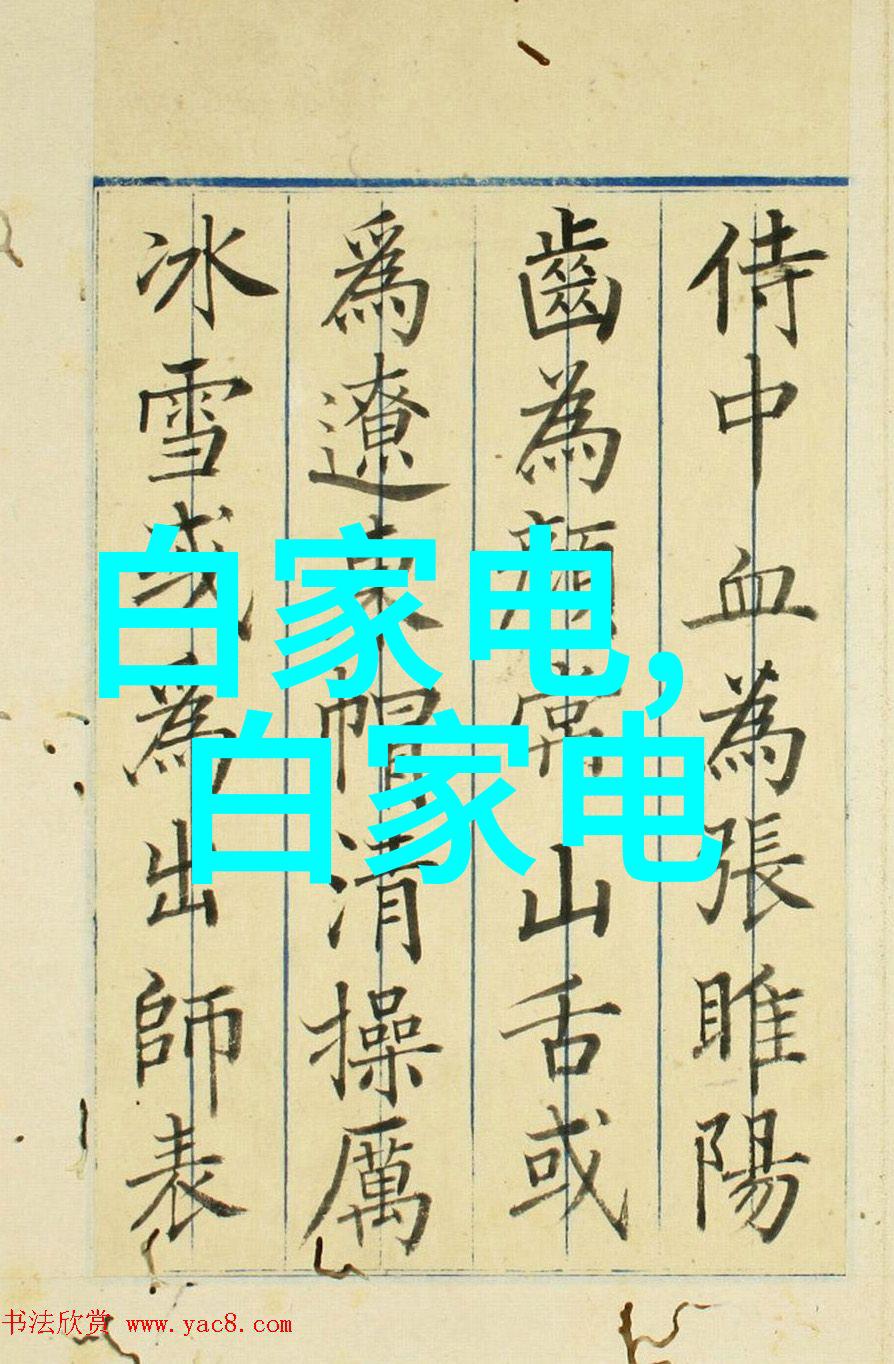 侍中血為張睢陽
齒為顔常山舌或
爲遼東帽清操厲
冰雪或為出師表
白家电,
白家电
书法欣赏 www.yac8.com